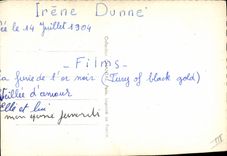 Irène Dunne
ée le 14 Juillet 1904
- Films -
a furie de l'or noir (Fury of black gold)
Veillée d'amour
Elle et lui
mon
III